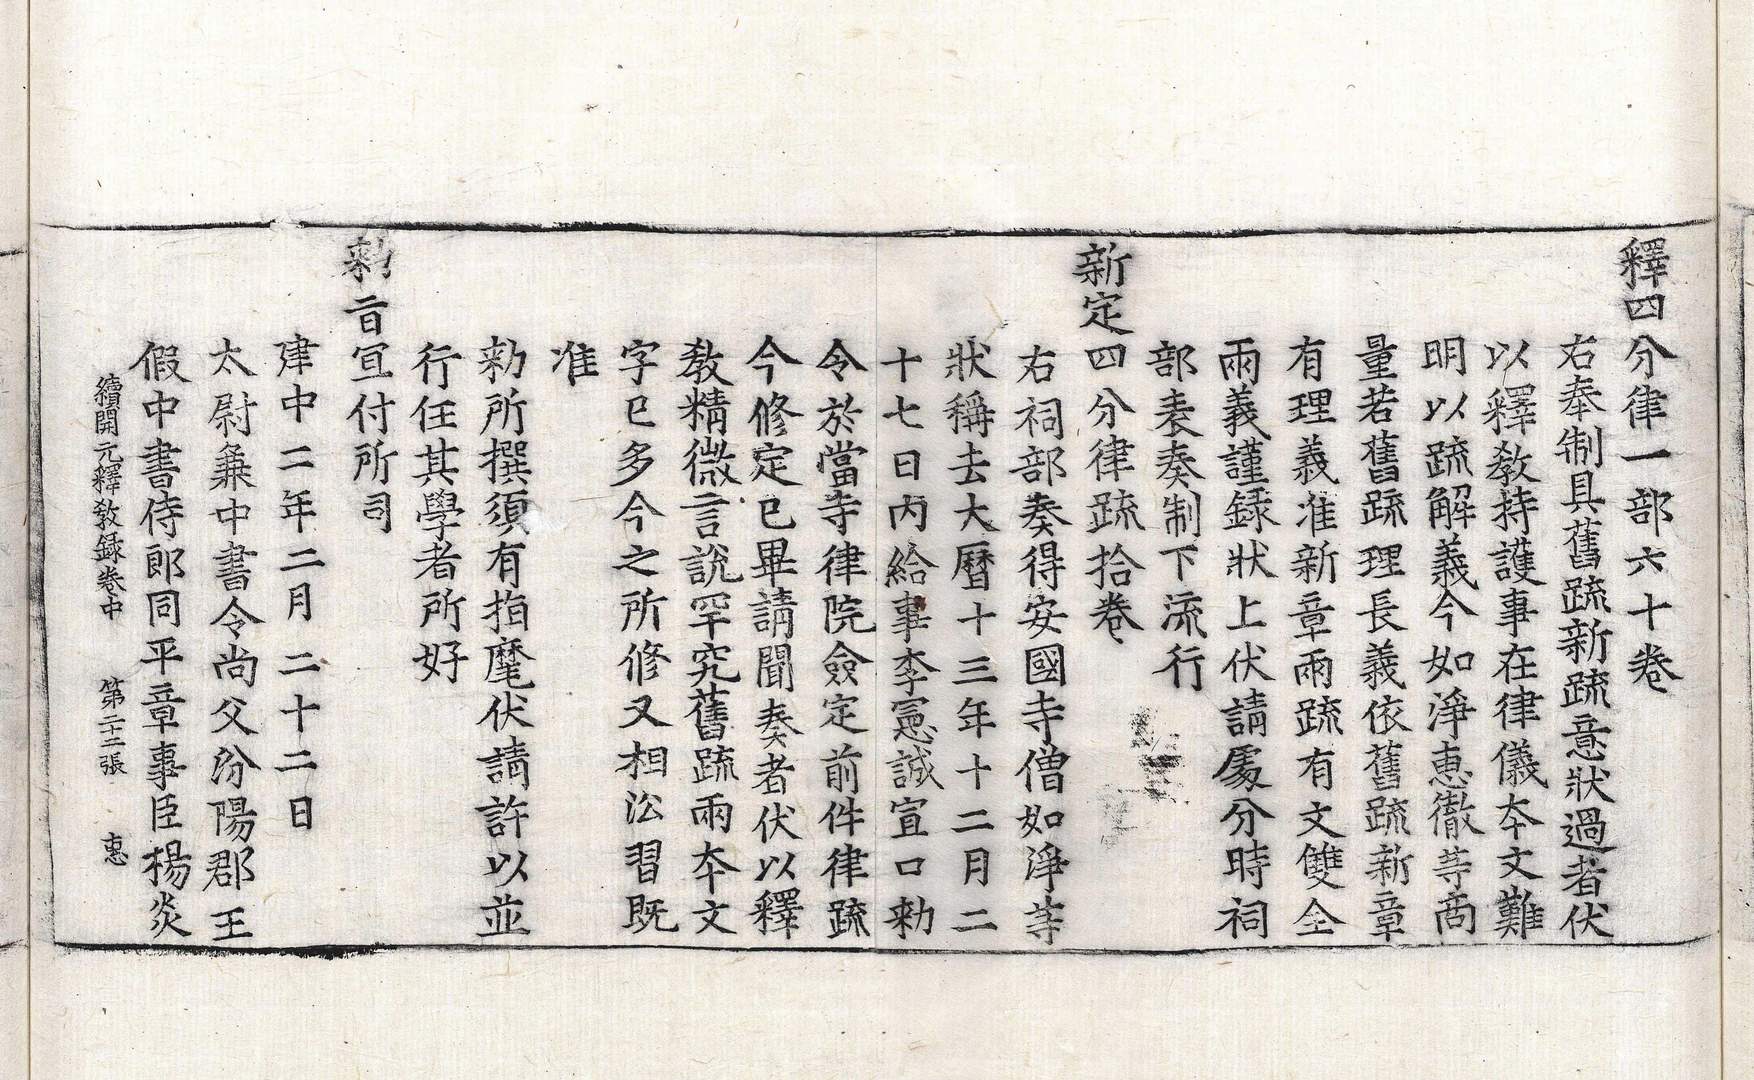 釋四分律一部六十卷
右奉制具舊䟽新䟽意狀過者伏
以釋敎持護事在律儀夲文難
明以䟽解義今如淨恵徹䓁啇
量若舊䟽理長義依舊䟽新章
有理義准新章兩䟽有文雙仝
兩義謹録狀上伏請䖏分時祠
部表奏制下流行
新定四分律䟽拾卷
右祠部奏得安國寺僧如淨䓁
狀稱去大曆十三年十二月二
十七日内給事李憲誠宣口勑
令於當寺律院僉定前件律䟽
今修定已畢請聞奏者伏以釋
敎精微言說罕究舊䟽兩夲文
字已多今之所修又相㳂習旣
准
勑所撰須有指麾伏請許以並
行任其學者所好
勑旨宣付所司
建中二年二月二十二日
太尉兼中書令尚父汾陽郡王
假中書侍郎同平章事臣楊炎
續開元釋敎録卷中 第二十二張 恵